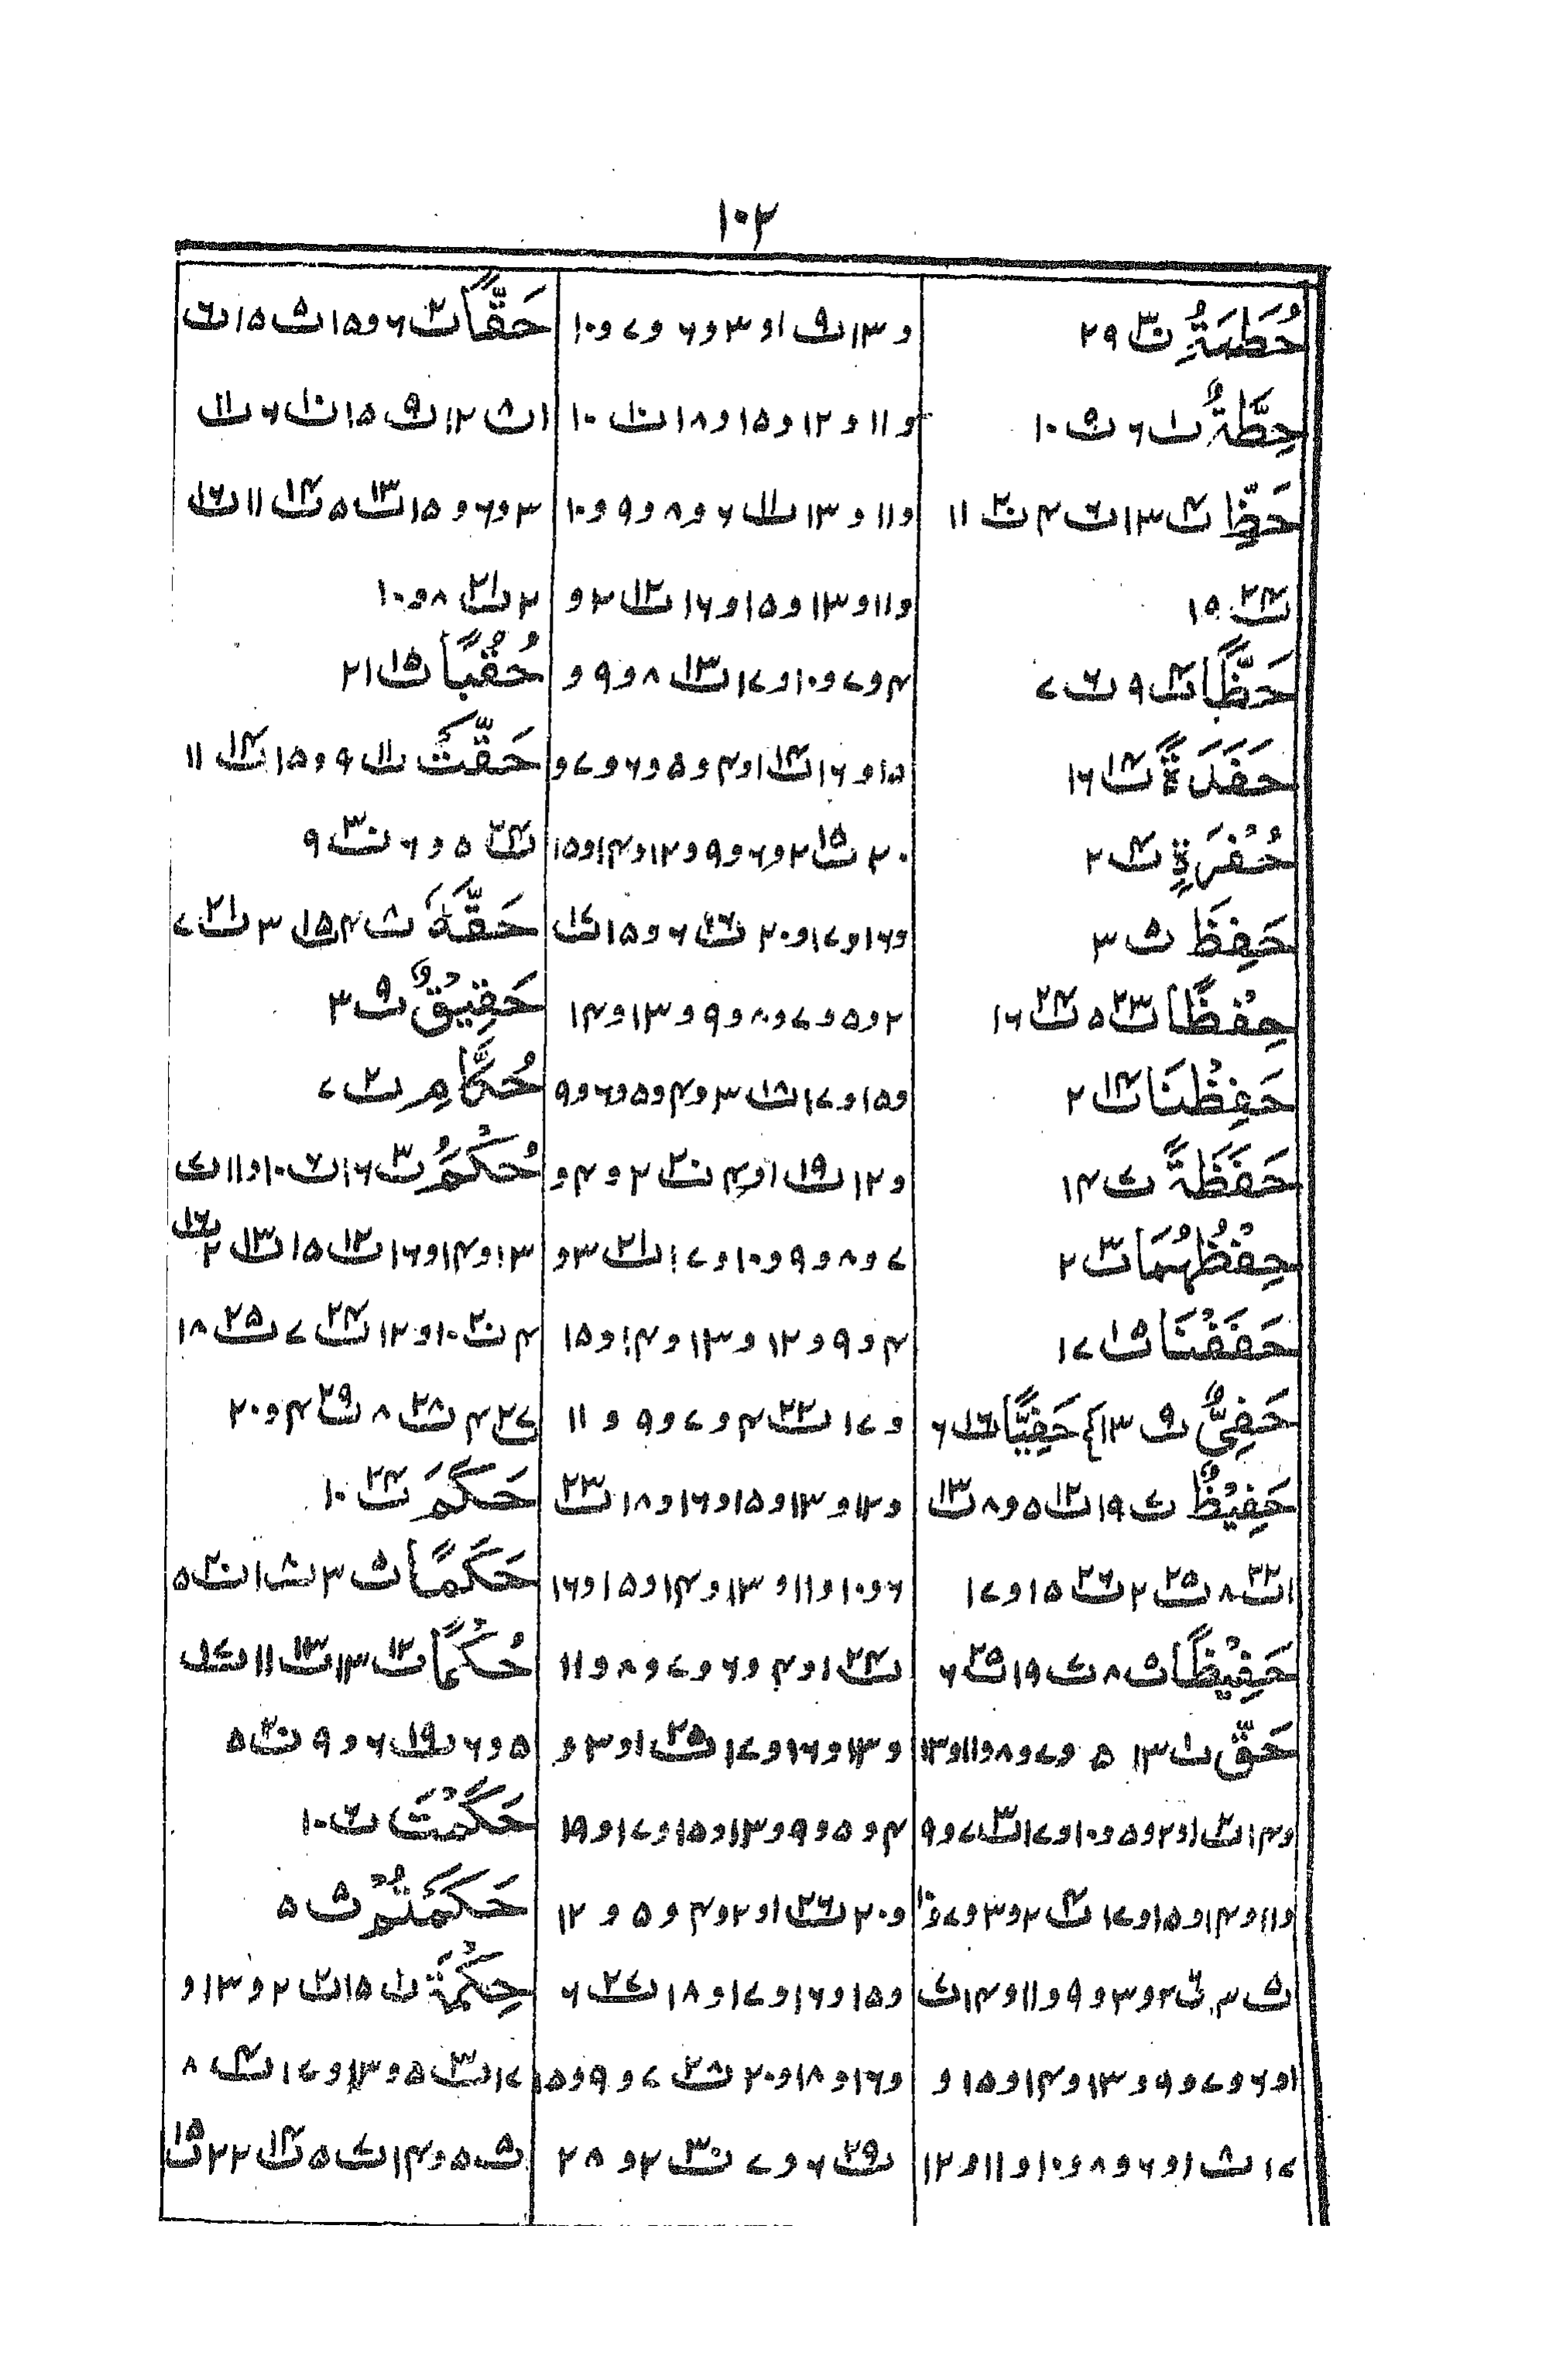 ۱۰۲
حُطَمَةُ پ۳۰ ۲۹
حِطَّةٌ پ۱ ۶ پ۹ ۱۰
حَظِّ پ۴ ۱۳ پ۶ ۴ پ۲۰ ۱۱
پ۲۴ ۱۹
حَظًّا پ۴ ۹ پ۶ ۷
حَفَدَةً پ۱۴ ۱۶
حُفْرَةٍ پ۴ ۲
حَفِظَ پ۵ ۳
حِفْظًا پ۲۳ ۵ پ۲۴ ۱۶
حَفِظْنَا پ۱۴ ۲
حَفَظَةً پ۷ ۱۴
حِفْظُهُمَا پ۳ ۲
حَفَفْنَا پ۱۵ ۱۷
حَفِيٌّ پ۹ ۱۳ حَفِيًّا پ۱۶ ۶
حَفِيْظٌ پ۷ ۱۹ پ۱۲ ۵ و ۸ پ۱۳
۱ پ۲۲ ۸ پ۲۵ ۲ پ۲۶ ۱۵ و ۱۷
حَفِيْظًا پ۵ ۸ پ۷ ۱۹ پ۲۵ ۶
حَقّ پ۱ ۳ ۵ و ۷ و ۸ و ۱۱ و ۱۳
و ۱۴ پ۲ ۱ و ۲ و ۵ و ۱۰ و ۱۷ پ۳ ۷ و ۹
و ۱۱ و ۱۴ و ۱۵ و ۱۷ پ۴ ۲ و ۳ و ۷ و ۱۰
پ۵ ۳ پ۶ ۲ و ۳ و ۹ و ۱۱ و ۱۴ پ۷
۱ و ۶ و ۷ و ۹ و ۱۳ و ۱۴ و ۱۵ و
۱۷ پ۸ ۱ و ۶ و ۸ و ۱۰ و ۱۱ و ۱۲
و ۱۳ پ۹ ۱ و ۳ و ۶ و ۷ و ۱۰
و ۱۱ و ۱۲ و ۱۵ و ۱۸ پ۱۰ ۱۰
و ۱۱ و ۱۳ پ۱۱ ۶ و ۸ و ۹ و ۱۰
و ۱۱ و ۱۳ و ۱۵ و ۱۶ پ۱۲ ۲ و
۴ و ۷ و ۱۰ و ۱۷ پ۱۳ ۸ و ۹ و
۱۵ و ۱۶ پ۱۴ ۱ و ۴ و ۵ و ۶ و ۷ و
۲۰ پ۱۵ ۲ و ۶ و ۹ و ۱۲ و ۱۴ و ۱۵
و ۱۶ و ۱۷ و ۲۰ پ۱۶ ۶ و ۱۵ پ۱۷
۲ و ۵ و ۷ و ۸ و ۹ و ۱۳ و ۱۴
و ۱۵ و ۱۷ پ۱۸ ۳ و ۴ و ۵ و ۶ و ۹
و ۱۲ پ۱۹ ۱ و ۴ پ۲۰ ۲ و ۴ و
۷ و ۸ و ۹ و ۱۰ و ۱۷ پ۲۱ ۳ و
۴ و ۹ و ۱۲ و ۱۳ و ۱۴ و ۱۵
و ۱۷ پ۲۲ ۴ و ۷ و ۹ و ۱۱
و ۱۲ و ۱۳ و ۱۵ و ۱۶ و ۱۸ پ۲۳
۶ و ۱۰ و ۱۱ و ۱۳ و ۱۴ و ۱۵ و ۱۶
پ۲۴ ۱ و ۴ و ۶ و ۷ و ۸ و ۱۱
و ۱۳ و ۱۶ و ۱۷ پ۲۵ ۱ و ۳ و
۴ و ۵ و ۹ و ۱۳ و ۱۵ و ۱۷ و ۱۹
و ۲۰ پ۲۶ ۱ و ۲ و ۴ و ۵ و ۱۲
و ۱۵ و ۱۶ و ۱۷ و ۱۸ پ۲۷ ۶
و ۱۶ و ۱۸ و ۲۰ پ۲۸ ۷ و ۹ و ۱۵
پ۲۹ ۶ و ۷ پ۳۰ ۲ و ۲۸
حَقًّا پ۲ ۶ و ۱۵ پ۵ ۱۵ پ۶
۱ پ۸ ۱۲ پ۹ ۱۵ پ۱۰ ۶ پ۱۱
۳ و ۶ و ۱۵ پ۱۳ ۵ پ۱۴ ۱۱ پ۱۶
۲ پ۲۱ ۸ و ۱۰
حُقُبًا پ۱۵ ۲۱
حَقَّتْ پ۱۱ ۹ و ۱۵ پ۱۴ ۱۱
پ۲۴ ۵ و ۶ پ۳۰ ۹
حَقَّهٗ پ۸ ۴ پ۱۵ ۳ پ۲۱ ۷
حَقِيْقٌ پ۹ ۳
حُكَّامِ پ۲ ۷
حُكْمُ پ۳ ۱۶ پ۷ ۱۰ و ۱۱ پ۷
۱۳ و ۱۴ و ۱۶ پ۱۲ ۱۵ پ۱۳ ۲ پ۱۶
۴ پ۲۰ ۱۰ و ۱۲ پ۲۴ ۷ پ۲۵ ۱۸
پ۲۷ ۴ پ۲۸ ۸ پ۲۹ ۴ و ۲۰
حَكَمَ پ۲۴ ۱۰
حَكَمًا پ۵ ۳ پ۸ ۱ پ۲۰ ۵
حُكْمًا پ۱۲ ۱۳ پ۱۳ ۱۱ پ۱۷
۵ و ۶ پ۱۹ ۶ و ۹ پ۲۰ ۵
حَكَمْتَ پ۶ ۱۰
حَكَمْتُمْ پ۵ ۵
حِكْمَةَ پ۱ ۱۵ پ۲ ۲ و ۱۳ و
۱۷ پ۳ ۵ و ۱۳ و ۱۷ پ۴ ۸
پ۵ ۵ و ۱۴ پ۷ ۵ پ۱۴ ۲۲ پ۱۵